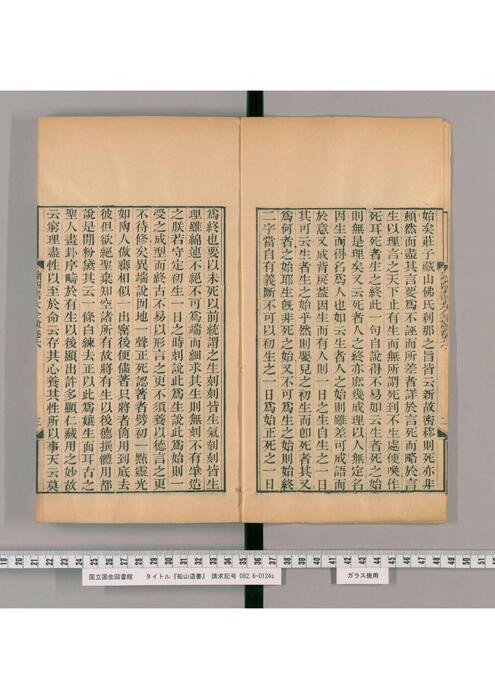 始矣莊子藏山佛氏刹那之旨皆云新故密移則死亦非
頓然而盡其言要爲不誣而所差者詳於言死而略於言
生以理言之天下止有生而無所謂死到不生處便喚作
死耳死者生之終此一句自說得不易如云生者死之始
則無是理矣又云死者人之終亦庶幾成理以人無定名
因生而得名爲人也如云生者人之始則雖差可成語而
於意又成背戾蓋因生而有人則一日之生自生之一日
其可云生者生之始乎然則嬰兒之初生而卽死者其又
爲何者之始耶生旣非死之始又不可爲生之始則始終
二字當自有義斷不可以初生之一日爲始正死之一日
爲終也要以未死以前統謂之生刻刻皆生氣刻刻皆生
理雖綿連不絕不可爲端而細求其生則無刻不有肇造
之朕若守定初生一日之時刻說此爲生說此爲始則一
受之成型而終古不易以形言之更不須養以德言之更
不待修矣異端說囫地一聲正死認著者劈初一點靈光
如陶人做甕相似一出窑後便儘著只將者箇用到底去
彼但欲絕聖棄知空諸所有故將有生以後德撰體用都
說是閒粉黛其云一條白練去正以此爲孃生面耳古之
聖人畫卦序疇於有生以後顯出許多顯仁藏用之妙故
云窮理盡性以至於命云存其心養其性所以事天云莫
三
国立国会図書館 タイトル『船山遺書』 請求記号 082.6-0124s
ガラス使用
19 20 21 22 23 24 25 26 27 28 29 30 31 32 33 34 35 36 37 38 39 40 41 42 43 44 45 46 47 48 49 50 51